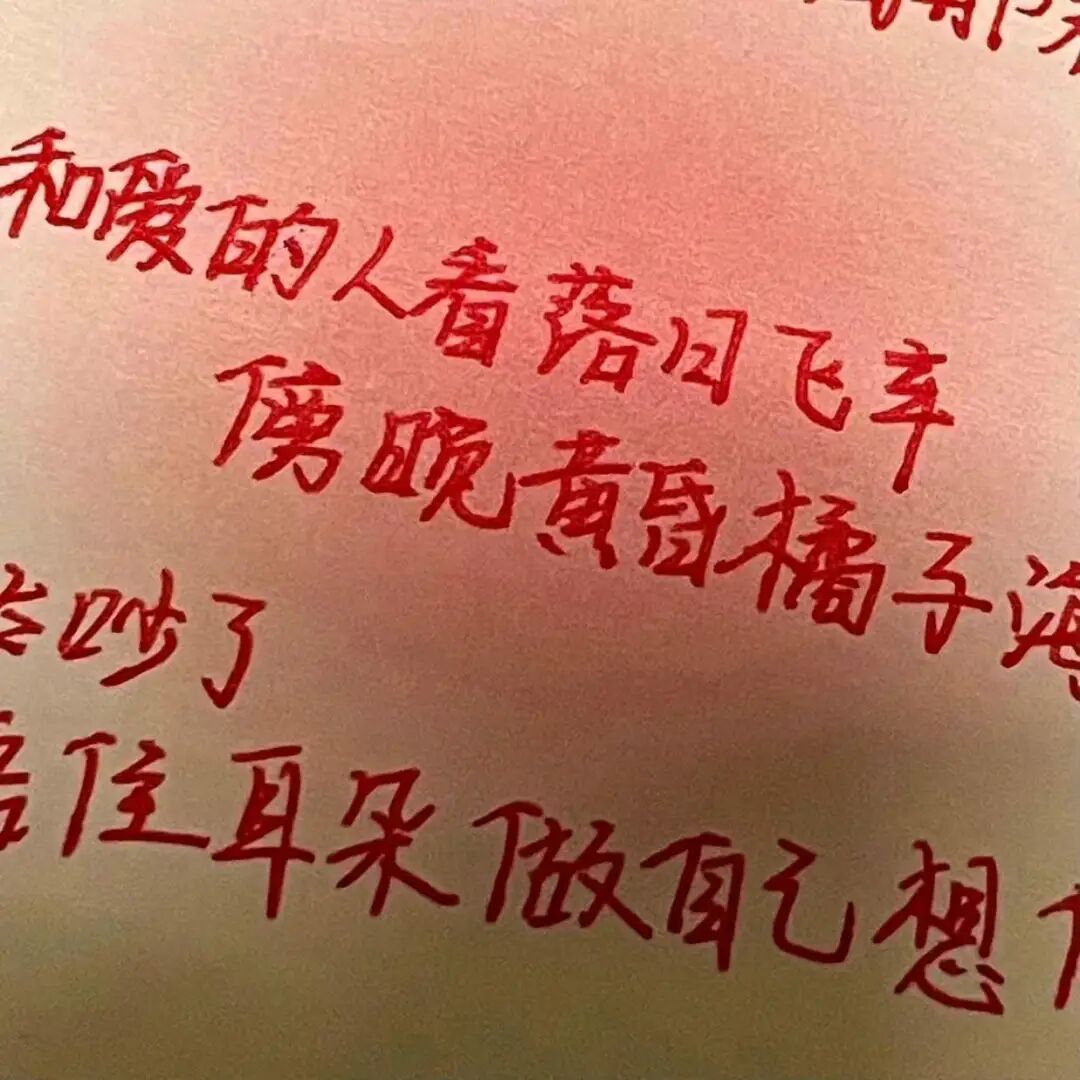 和爱的人看落日飞车
傍晚黄昏橘子海
吵了
捂住耳朵做自己想